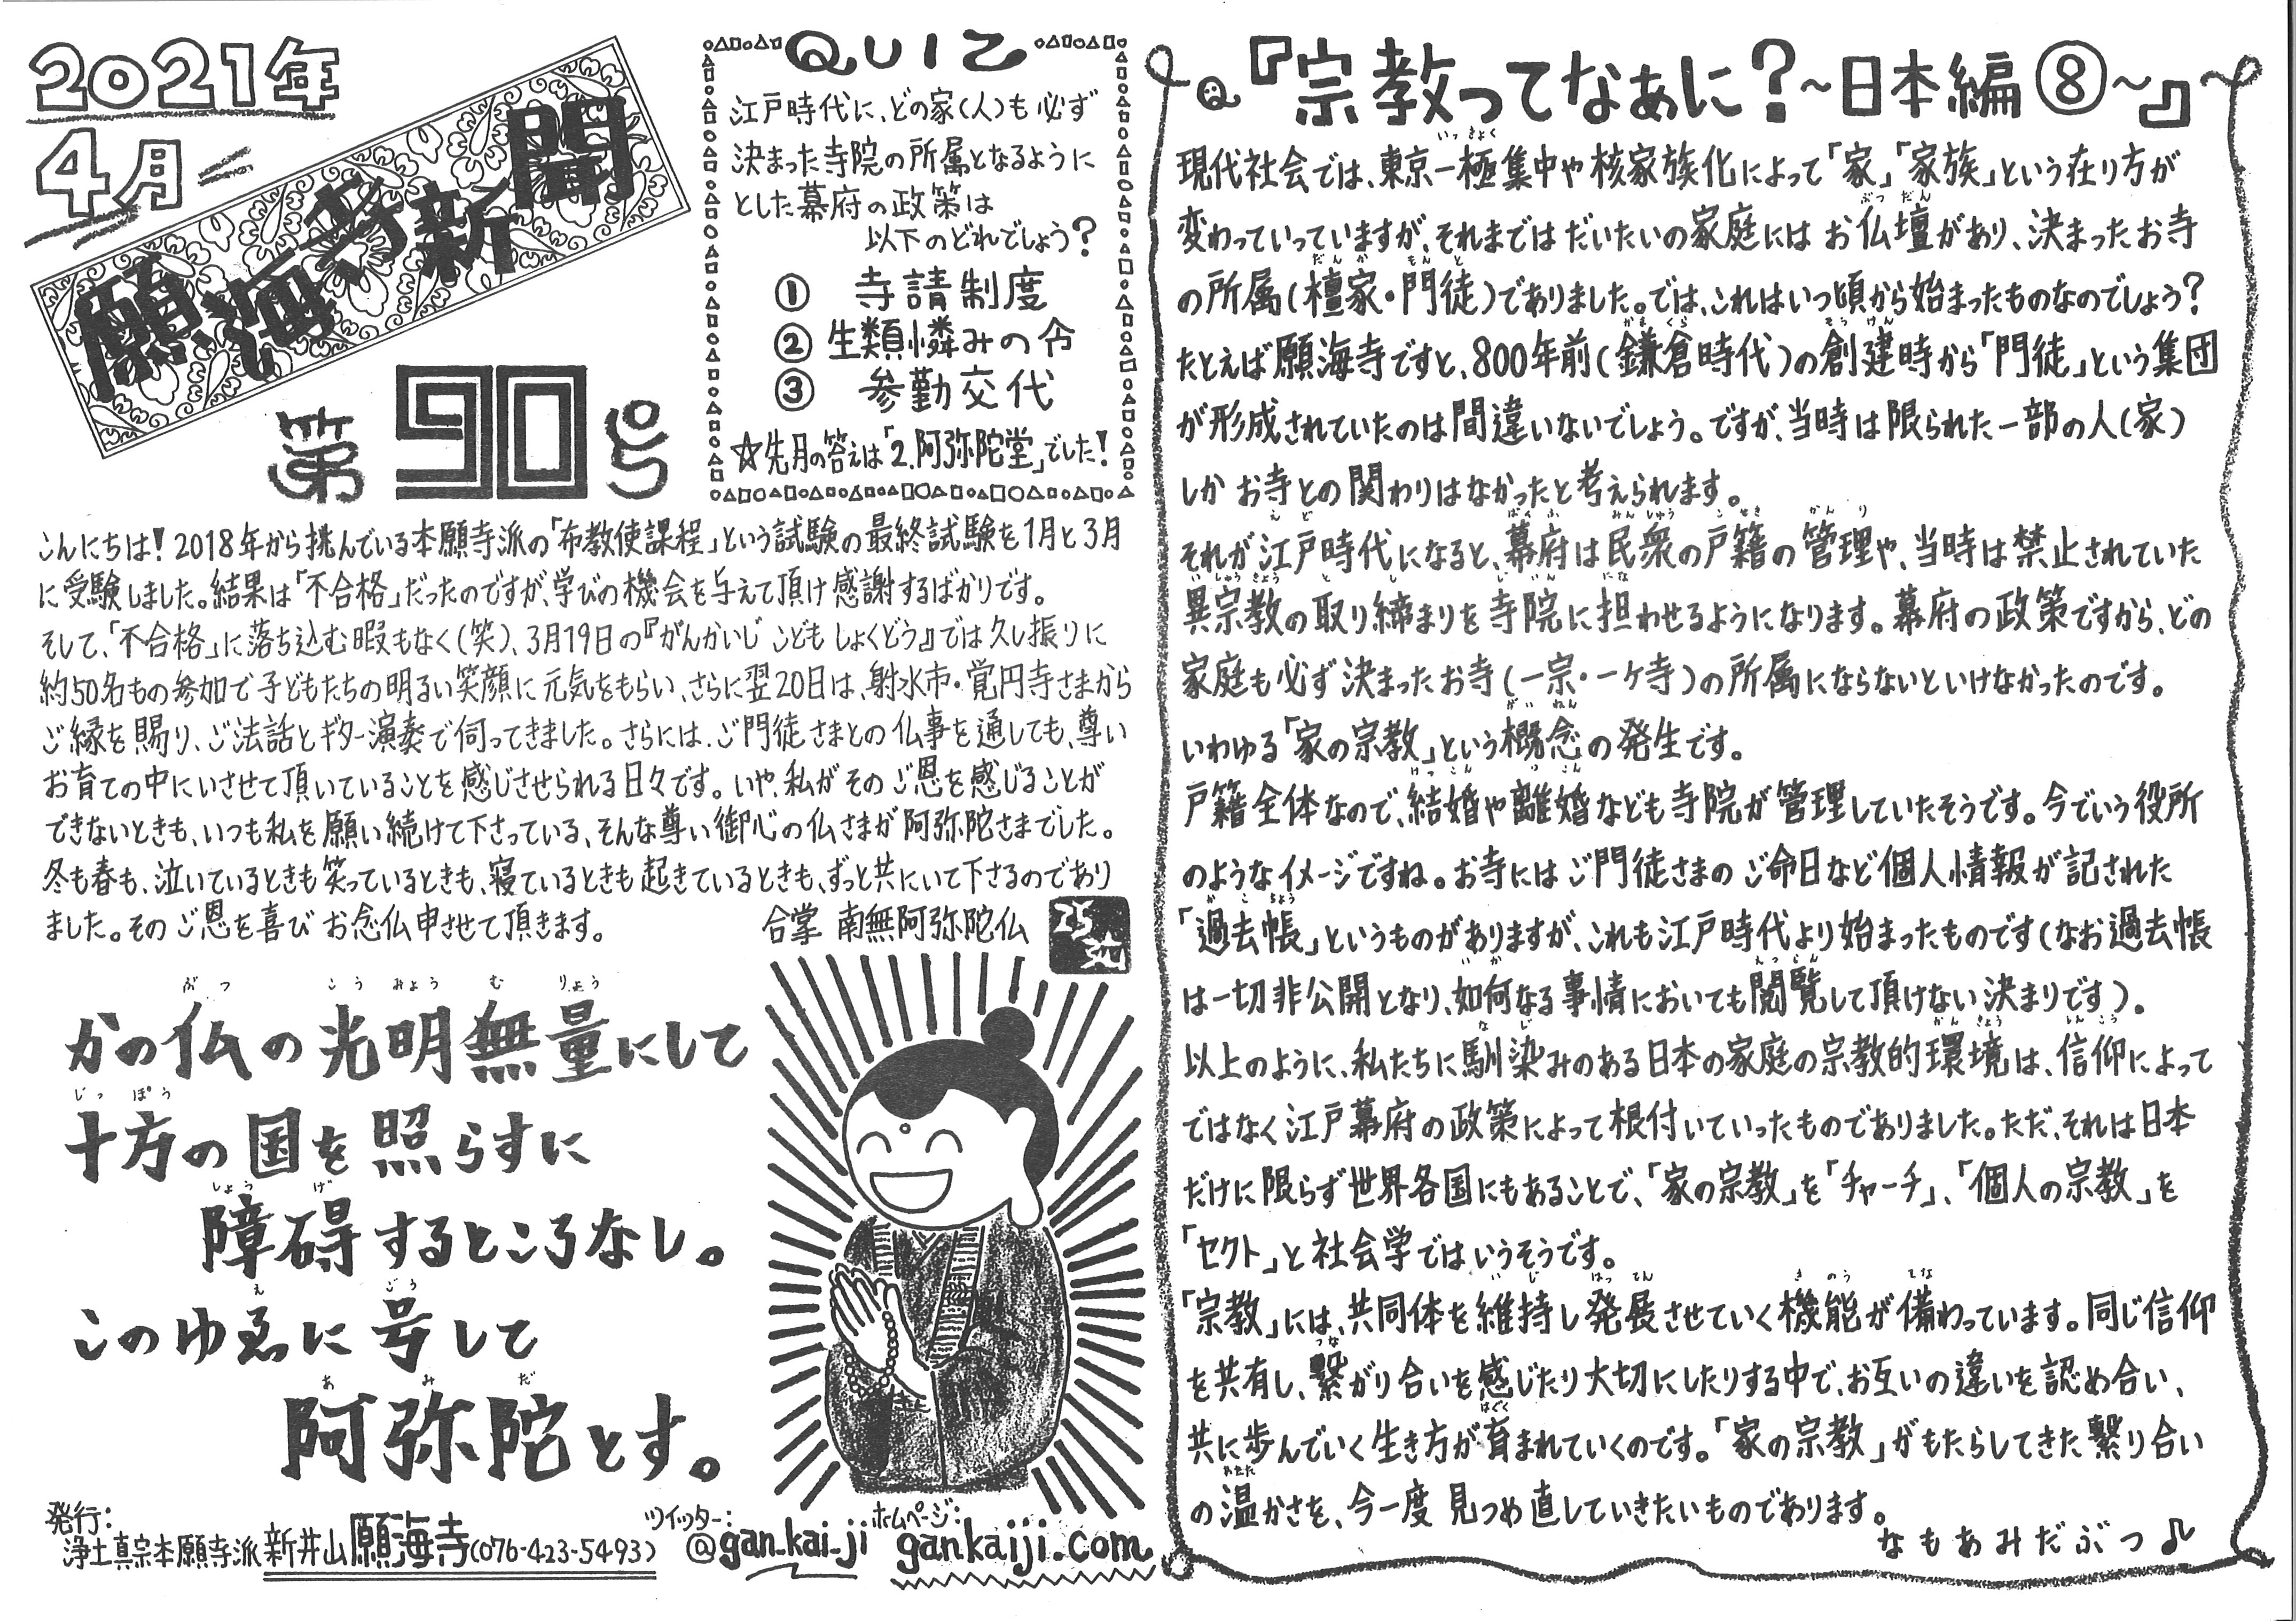 2021年
4月
願海寺新聞
第90号
QUIZ
江戸時代に、どの家(人)も必ず
決まった寺院の所属となるように
とした幕府の政策は
以下のどれでしょう?
① 寺請制度
② 生類憐みの令
③ 参勤交代
☆先月の答えは「2.阿弥陀堂」でした!
こんにちは!2018年から挑んでいる本願寺派の「布教使課程」という試験の最終試験を1月と3月
に受験しました。結果は「不合格」だったのですが、学びの機会を与えて頂け感謝するばかりです。
そして、「不合格」に落ち込む暇もなく(笑)、3月19日の『がんかいじ こども しょくどう』では久し振りに
約50名もの参加で子どもたちの明るい笑顔に元気をもらい、さらに翌20日は、射水市・覚円寺さまから
ご縁を賜り、ご法話とギター演奏で伺ってきました。さらには、ご門徒さまとの仏事を通しても、尊い
お育ての中にいさせて頂いていることを感じさせられる日々です。いや、私がそのご恩を感じることが
できないときも、いつも私を願い続けて下さっている、そんな尊い御心の仏さまが阿弥陀さまでした。
冬も春も、泣いているときも笑っているときも、寝ているときも起きているときも、ずっと共にいて下さるのであり
ました。そのご恩を喜びお念仏申させて頂きます。
合掌 南無阿弥陀仏
かの仏の光明無量にして
ぶつ こうみょう むりょう
十方の国を照らすに
じっぽう
障碍するところなし。
しょうげ
このゆゑに号して
え ごう
阿弥陀とす。
あみだ
発行:
浄土真宗本願寺派 新井山 願海寺(076-423-5493)
ツイッター:
@gan_kai_ji
ホームページ:
gankaiji.com
Q『宗教ってなぁに?~日本編⑧~』
いっきょく
現代社会では、東京一極集中や核家族化によって「家」「家族」という在り方が
ぶつだん
変わっていっていますが、それまではだいたいの家庭にはお仏壇があり、決まったお寺
だんか もんと
の所属(檀家・門徒)でありました。では、これはいつ頃から始まったものなのでしょう?
かまくら そうけん
たとえば願海寺ですと、800年前(鎌倉時代)の創建時から「門徒」という集団
が形成されていたのは間違いないでしょう。ですが、当時は限られた一部の人(家)
しかお寺との関わりはなかったと考えられます。
えど ばくふ みんしゅう こせき かんり
それが江戸時代になると、幕府は民衆の戸籍の管理や、当時は禁止されていた
いしゅうきょう とし じいん にな
異宗教の取り締まりを寺院に担わせるようになります。幕府の政策ですから、どの
家庭も必ず決まったお寺(一宗・一ヶ寺)の所属にならないといけなかったのです。
がいねん
いわゆる「家の宗教」という概念の発生です。
けっこん りこん
戸籍全体なので、結婚や離婚なども寺院が管理していたそうです。今でいう役所
のようなイメージですね。お寺にはご門徒さまのご命日など個人情報が記された
かこちょう
「過去帳」というものがありますが、これも江戸時代より始まったものです(なお過去帳
いか えつらん
は一切非公開となり、如何なる事情においても閲覧して頂けない決まりです)。
なじ かんきょう しんこう
以上のように、私たちに馴染みのある日本の家庭の宗教的環境は、信仰によって
ではなく江戸幕府の政策によって根付いていったものでありました。ただ、それは日本
だけに限らず世界各国にもあることで、「家の宗教」を「チャーチ」、「個人の宗教」を
「セクト」と社会学ではいうそうです。
いじ はってん きのう そな
「宗教」には、共同体を維持し発展させていく機能が備わっています。同じ信仰
つな
を共有し、繋がり合いを感じたり大切にしたりする中で、お互いの違いを認め合い、
はぐく
共に歩んでいく生き方が育まれていくのです。「家の宗教」がもたらしてきた繋り合い
あたた
の温かさを、今一度 見つめ直していきたいものであります。
なもあみだぶつ♪